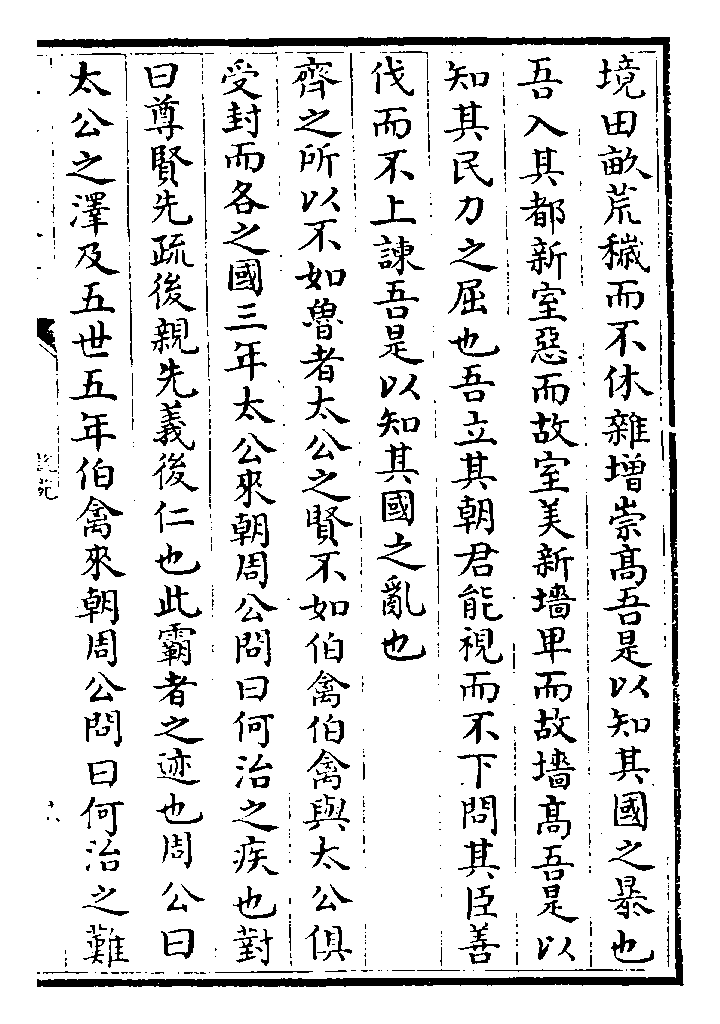 境田畝荒穢而不休雜增崇髙吾是以知其國之暴也
吾入其都新室惡而故室美新墻卑而故墻髙吾是以
知其民力之屈也吾立其朝君能視而不下問其臣善
伐而不上諫吾是以知其國之亂也
齊之所以不如魯者太公之賢不如伯禽伯禽與太公俱
受封而各之國三年太公來朝周公問曰何治之疾也對
曰尊賢先疏後親先義後仁也此霸者之迹也周公曰
太公之澤及五世五年伯禽來朝周公問曰何治之難
説苑